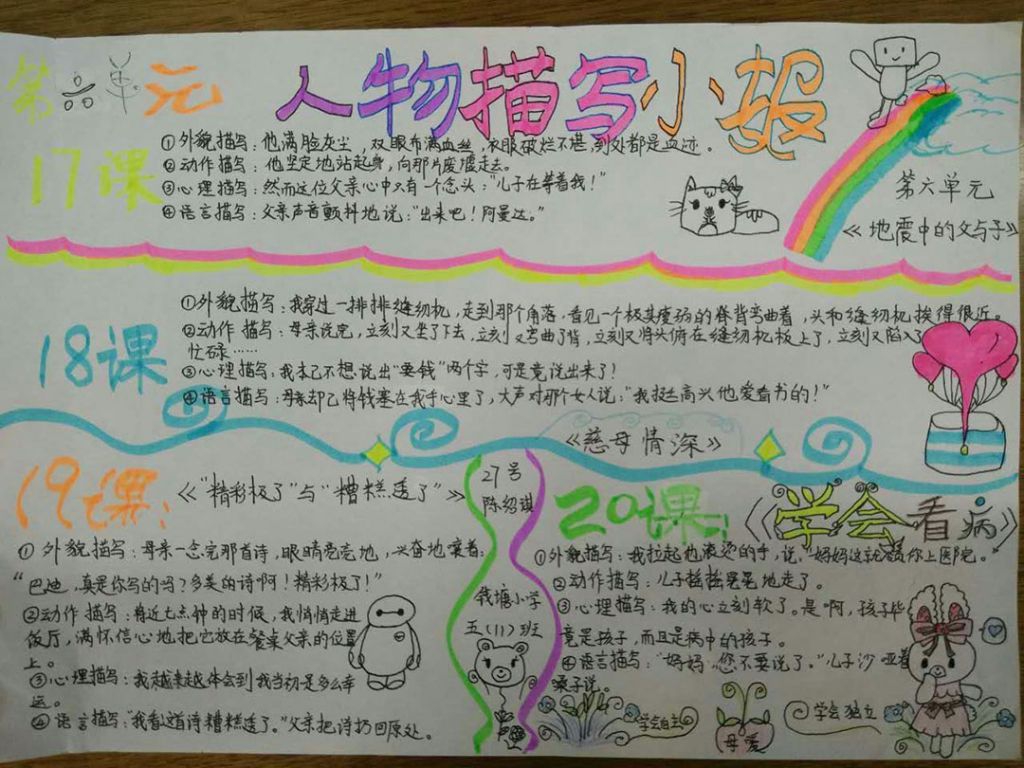 第六单元
人物描写小报
17课
①外貌描写:他满脸灰尘,双眼布满血丝,衣服破烂不堪,到处都是血迹。
②动作描写:他坚定地站起身,向那片废墟走去。
③心理描写:然而这位父亲心中只有一个念头:“儿子在等着我!”
④语言描写:父亲声音颤抖地说:“出来吧!阿曼达。”
第六单元
《地震中的父与子》
18课
①外貌描写:我穿过一排排缝纫机,走到那个角落,看见一个极其瘦弱的脊背弯曲着,头和缝纫机挨得很近。
②动作描写:母亲说完,立刻又坐了下去,立刻又弯曲了背,立刻又将头俯在缝纫机板上了,立刻又陷入了
忙碌……
③心理描写:我本己不想说出“要钱”两个字,可是竟说出来了!
④语言描写:母亲却已将钱塞在我手心里了,大声对那个女人说:“我挺高兴他爱看书的!”
《慈母情深》
19课:
《“精彩极了”与“糟糕透了”》
①外貌描写:母亲一念完那首诗,眼睛亮亮地,兴奋地嚷着:
“巴迪,真是你写的吗?多美的诗啊!精彩极了!”
②动作描写:将近七点钟的时候,我悄悄走进
饭厅,满怀信心地把它放在餐桌父亲的位置
上。
③心理描写:我越来越体会到我当初是多么幸
运。
④语言描写:“我看这首诗糟糕透了。”父亲把诗扔回原处。
27号
陈绍琪
钱塘小学
五(11)班
20课:
《学会看病》
①外貌描写:我拉起他滚烫的手,说,“妈妈这就领你上医院。”
②动作描写:儿子摇摇晃晃地走了。
③心理描写:我的心立刻软了。是啊,孩子毕
竟是孩子,而且是病中的孩子。
④语言描写:“妈妈,您不要说了。”儿子沙哑着
嗓子说。
学会自主
母爱
学会独立